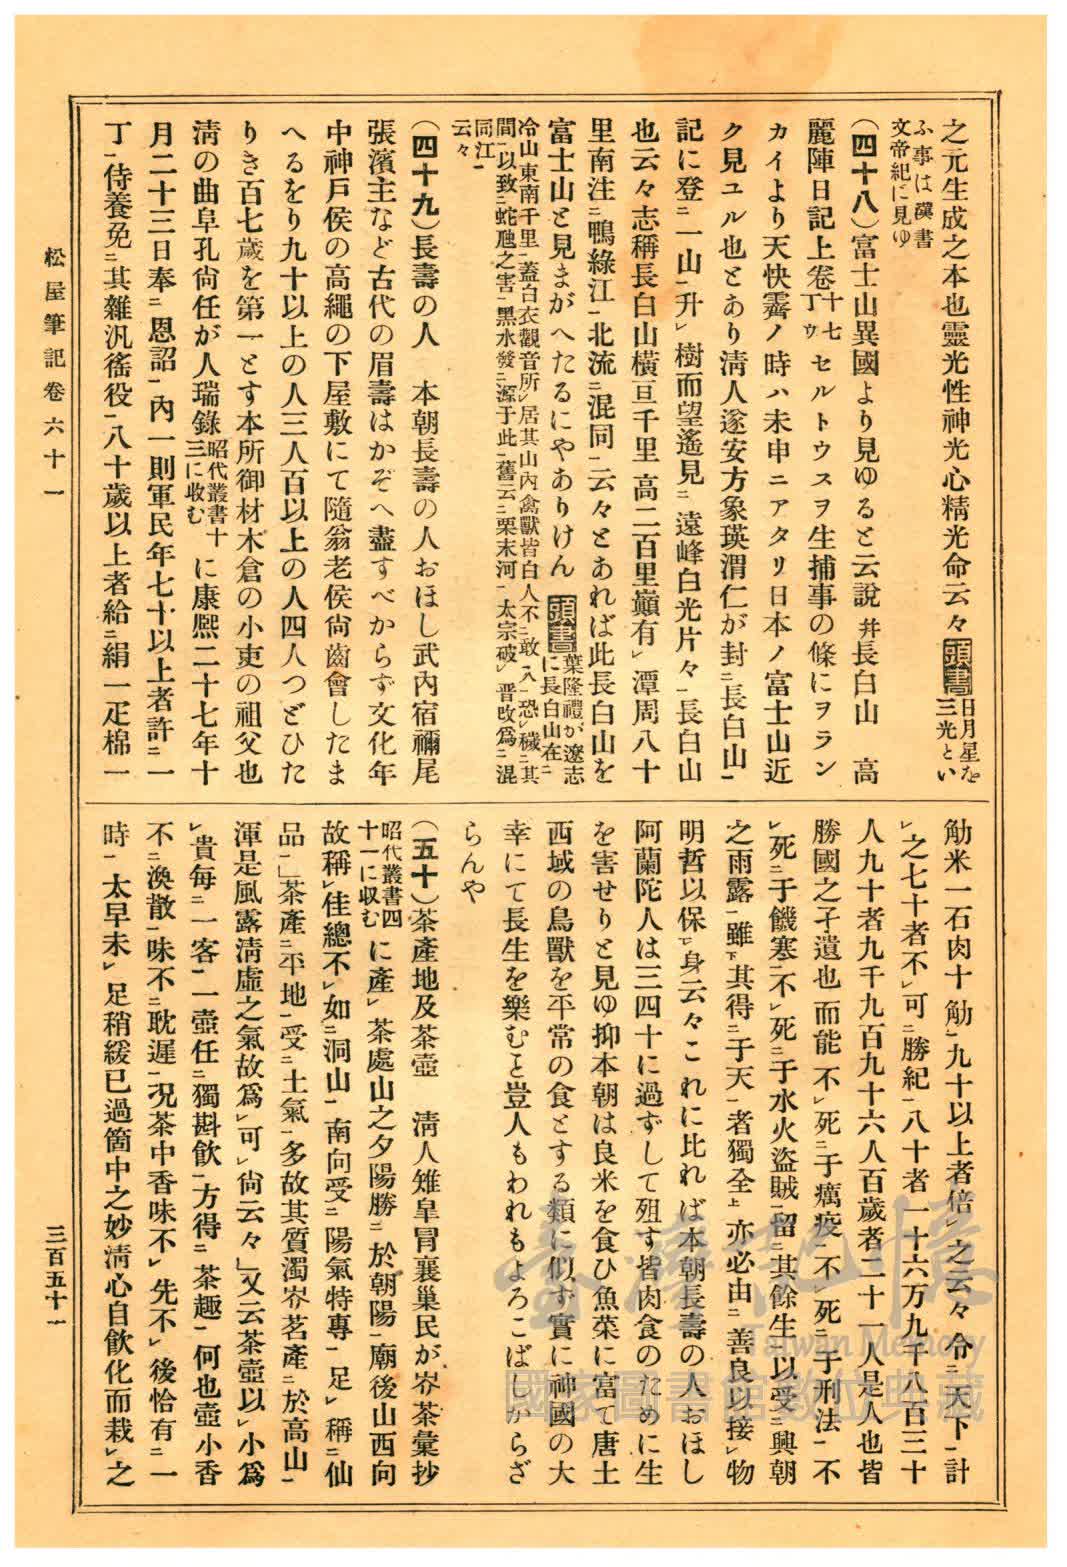 之元生成之本也靈光性神光心精光命云々頭書日月星を三光とい
ふ事は漢書文帝紀に見ゆ
（四十八）富士山異國より見ゆると云說幷長白山　高
麗陣日記上卷十七丁ウセルトウスヲ生捕事の條にヲラン
カイより天快霽ノ時ハ未申ニアタリ日本ノ富士山近
ク見ユル也とあり淸人遂安方象瑛渭仁が封ニ長白山一
記に登ニ一山一升レ樹而望遙見ニ遠峰白光片々一長白山
也云々志稱長白山橫亘千里高二百里巓有レ潭周八十
里南注ニ鴨綠江一北流ニ混同一云々とあれば此長白山を
富士山と見まがへたるにやありけん頭書葉隆禮が遼志に長白山在ニ
冷山東南千里一蓋白衣觀音所レ居其山內禽獸皆白人不ニ敢入一恐レ穢ニ其
間一以致ニ蛇虺之害一黑水發ニ源于此一舊云ニ粟末河一太宗破レ晋改爲ニ混
同江一云々
（四十九）長壽の人　本朝長壽の人おほし武內宿禰尾
張濱主など古代の眉壽はかぞへ盡すべからず文化年
中神戶侯の高繩の下屋敷にて隨翁老侯尙齒會したま
へるをり九十以上の人三人百以上の人四人つどひた
りき百七歲を第一とす本所御材木倉の小吏の祖父也
淸の曲阜孔尙任が人瑞錄昭代叢書十三に收むに康熙二十七年十
月二十三日奉ニ恩詔一內一則軍民年七十以上者許ニ一
丁一侍養免ニ其雜汎徭役一八十歲以上者給ニ絹一疋棉一
觔米一石肉十觔一九十以上者倍レ之云々令ニ天下一計
レ之七十者不レ可ニ勝紀一八十者一十六万九千八百三十
人九十者九千九百九十六人百歲者二十一人是人也皆
勝國之孑遺也而能不レ死ニ于癘疫一不レ死ニ于刑法一不
レ死ニ于饑寒一不レ死ニ于水火盜賊一留ニ其餘生一以受ニ興朝
之雨露一雖下其得ニ于天一者獨全上亦必由ニ善良以接レ物
明哲以保一レ身云々これに比れば本朝長壽の人おほし
阿蘭陀人は三四十に過ずして殂す皆肉食のために生
を害せりと見ゆ抑本朝は良米を食ひ魚菜に富て唐土
西域の鳥獸を平常の食とする類に似ず實に神國の大
幸にて長生を樂むと豈人もわれもよろこばしからざ
らんや
（五十）茶產地及茶壺　淸人雉皐冒襄巢民が岕茶彙抄
昭代叢書四十一に收むに產レ茶處山之夕陽勝ニ於朝陽一廟後山西向
故稱レ佳總不レ如ニ洞山一南向受ニ陽氣特專一足レ稱ニ仙
品一」茶產ニ平地一受ニ土氣一多故其質濁岕茗產ニ於高山一
渾是風露淸虛之氣故爲レ可レ尙云々」又云茶壺以レ小爲
レ貴每ニ一客一一壺任ニ獨斟飮一方得ニ茶趣一何也壺小香
不ニ渙散一味不ニ耽遲一况茶中香味不レ先不レ後恰有ニ一
時一太早未レ足稍緩已過箇中之妙淸心自飮化而裁レ之
松屋筆記卷六十一
三百五十一
臺灣記憶
Taiwan Memory
國家圖書館數位典藏